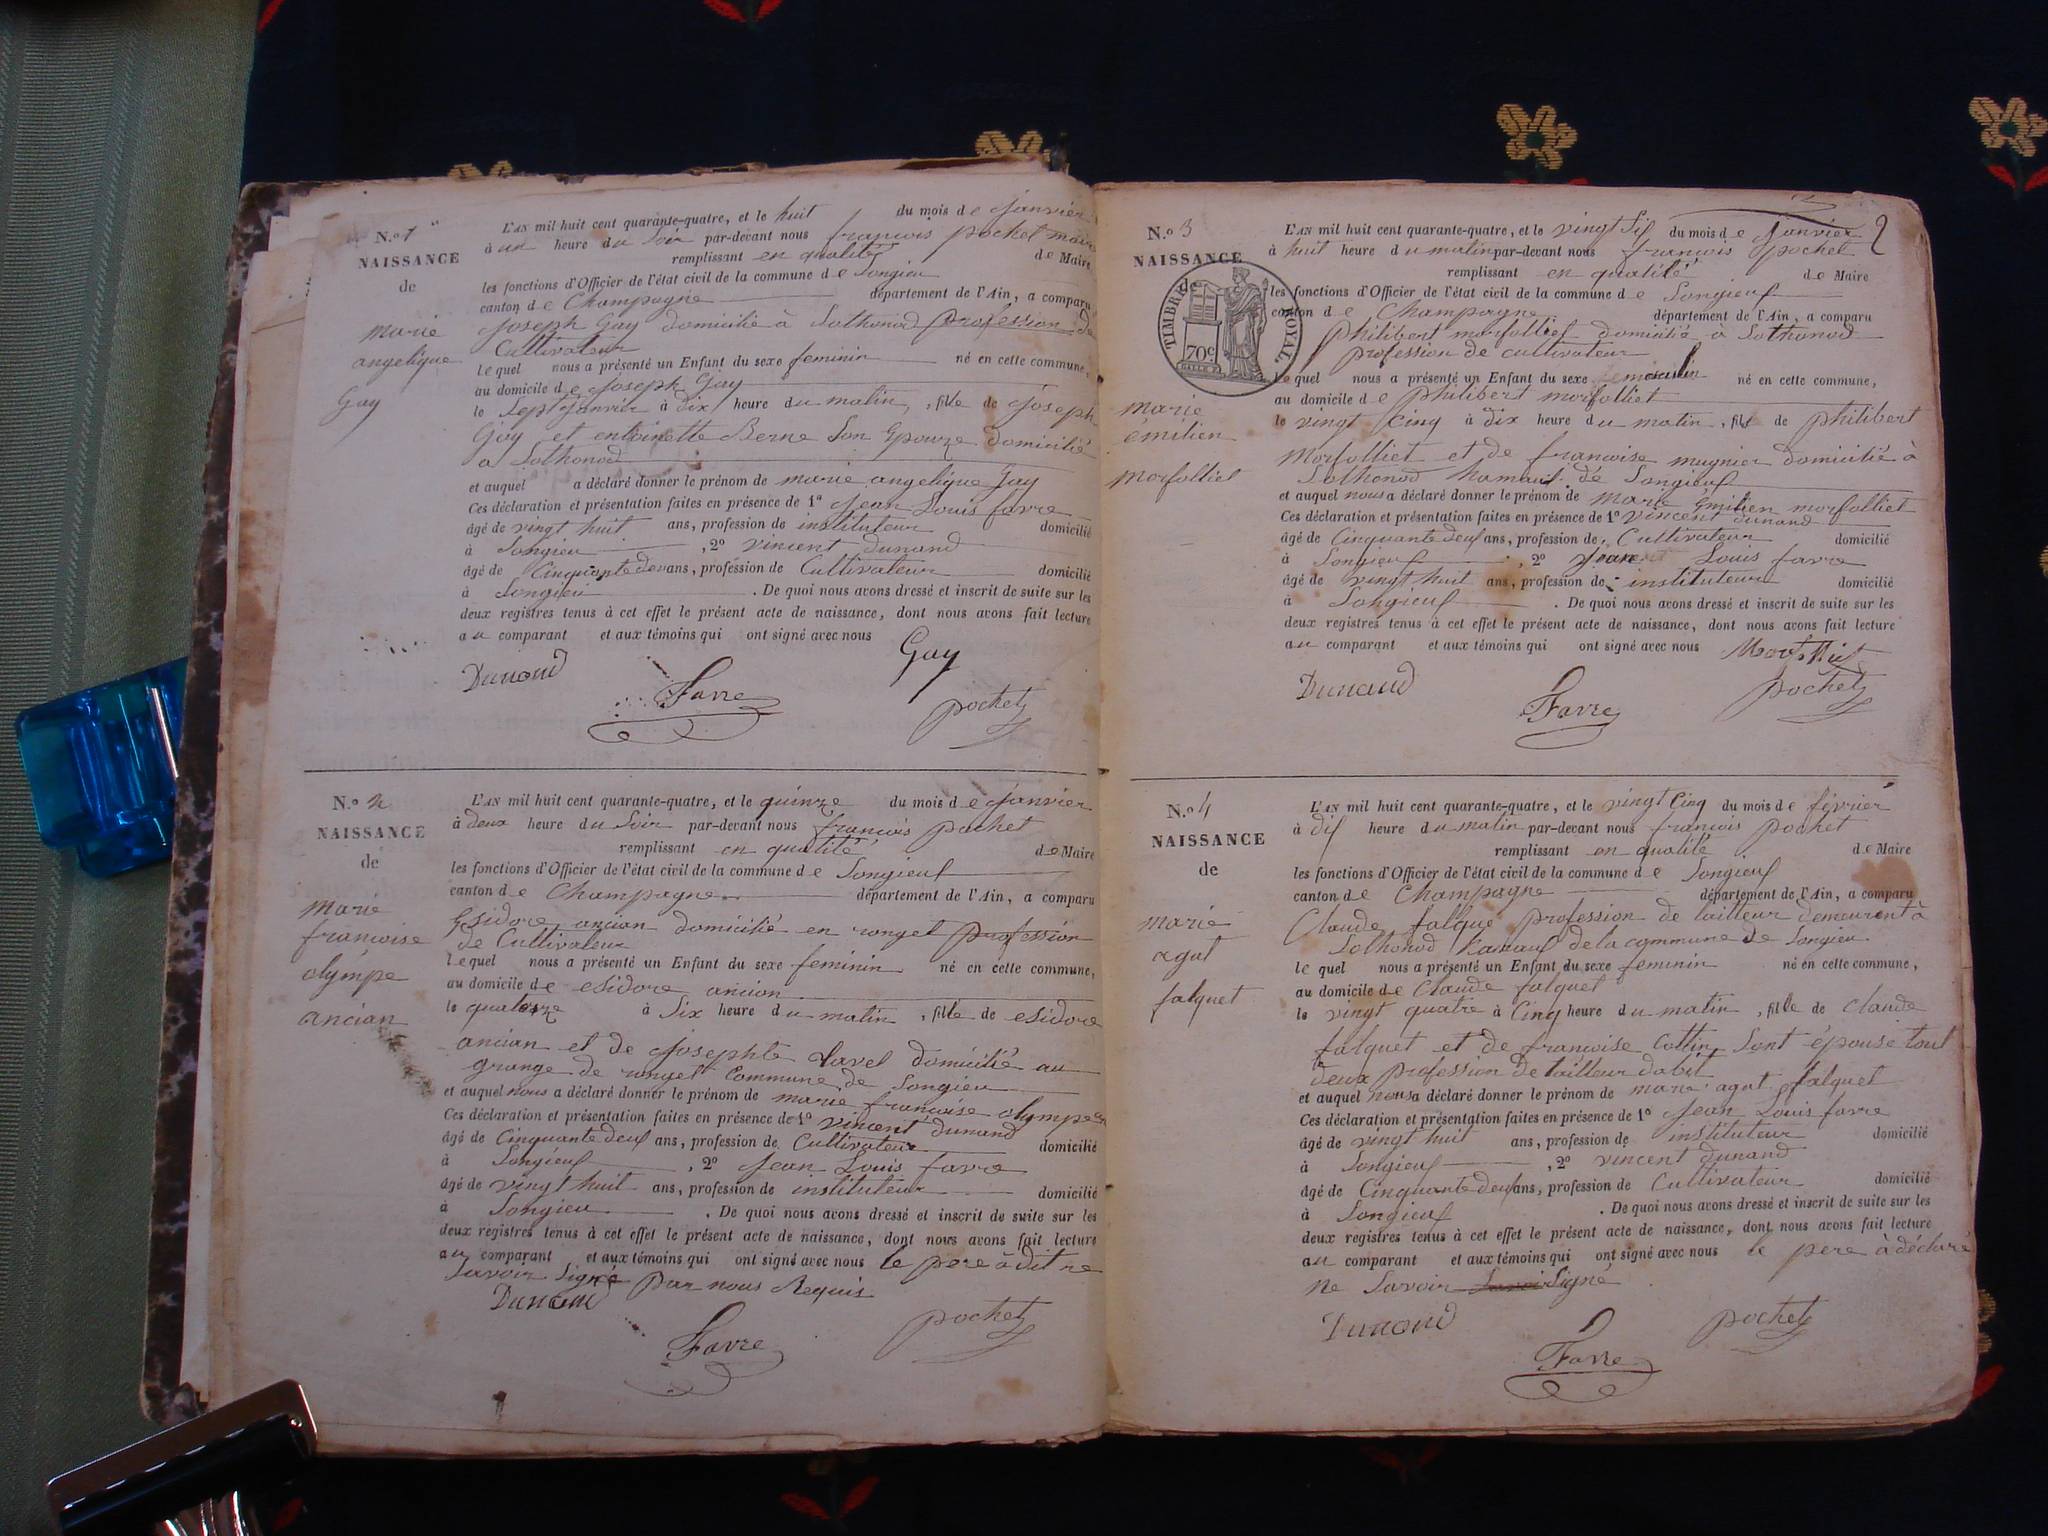 N.o 1
NAISSANCE
de
marie
angelique
Gay
L'AN mil huit cent quarante-quatre, et le huit du mois de janvier
à un heure du soir par-devant nous francois pochet maire
remplissant en qualité de Maire
les fonctions d'Officier de l'état civil de la commune de Songieu
canton de Champagne département de l'Ain, a comparu
Joseph Gay domicilié à Sothonod profession de
Cultivateur
lequel nous a présenté un Enfant du sexe feminin né en cette commune,
au domicile de Joseph Gay
le sept janvier à dix heure du matin, fille de Joseph
Gay et entoinette Berne son Epouze domicilié
a Sothonod
et auquel a déclaré donner le prénom de marie angelique Gay
Ces déclaration et présentation faites en présence de 1º Jean Louis favre
âgé de vingt huit ans, profession de instituteur domicilié
à Songieu, 2º vincent dunand
âgé de Cinquante deux ans, profession de Cultivateur domicilié
à Songieu. De quoi nous avons dressé et inscrit de suite sur les
deux registres tenus à cet effet le présent acte de naissance, dont nous avons fait lecture
au comparant et aux témoins qui ont signé avec nous
Gay
Dunand
Favre
pochet
N.o 2
NAISSANCE
de
marie
francoise
olympe
ancian
L'AN mil huit cent quarante-quatre, et le quinze du mois de janvier
à deux heure du soir par-devant nous francois pochet
remplissant en qualité de Maire
les fonctions d'Officier de l'état civil de la commune de Songieuf
canton de Champagne département de l'Ain, a comparu
Esidore ancian domicilié en ronget profession
de Cultivateur
lequel nous a présenté un Enfant du sexe feminin né en cette commune,
au domicile de esidore ancian
le quatorze à Six heure du matin, fille de esidore
ancian et de Josephte Cavel domicilié au
grange de ronget Commune de Songieu
et auquel nous a déclaré donner le prénom de marie francoise olympe
Ces déclaration et présentation faites en présence de 1º vincent dunand
âgé de Cinquante deuf ans, profession de Cultivateur domicilié
à Songieuf, 2º Jean Louis favre
âgé de vingt huit ans, profession de instituteur domicilié
à Songieu. De quoi nous avons dressé et inscrit de suite sur les
deux registres tenus à cet effet le présent acte de naissance, dont nous avons fait lecture
au comparant et aux témoins qui ont signé avec nous le pere à dit ne
Savoir Signé par nous Requis
Dunand
Favre
pochet
2
N.o 3
NAISSANCE
TIMBRE ROYAL
70c
marie
émilien
morfolliet
L'AN mil huit cent quarante-quatre, et le vingt Sif du mois de janvier
à huit heure du matin par-devant nous francois pochet
remplissant en qualité de Maire
les fonctions d'Officier de l'état civil de la commune de Songieuf
canton de Champagne département de l'Ain, a comparu
Philibert morfolliet domicilié à Sothonod
profession de cultivateur
lequel nous a présenté un Enfant du sexe masculin né en cette commune,
au domicile de philibert morfolliet
le vingt Cinq à dix heure du matin, fils de philibert
Morfolliet et de francoise mugnier domicilié à
Sothonod hamauf de Songieuf
et auquel nous a déclaré donner le prénom de marie Emilien morfolliet
Ces déclaration et présentation faites en présence de 1º vincent dunand
âgé de Cinquante deuf ans, profession de Cultivateur domicilié
à Songieuf, 2º Jean Louis favre
âgé de vingt huit ans, profession de instituteur domicilié
à Songieuf. De quoi nous avons dressé et inscrit de suite sur les
deux registres tenus à cet effet le présent acte de naissance, dont nous avons fait lecture
au comparant et aux témoins qui ont signé avec nous Morfolliet
Dunand
Favre
pochet
N.o 4
NAISSANCE
de
marie
agat
falquet
L'AN mil huit cent quarante-quatre, et le vingt Cinq du mois de février
à dif heure du matin par-devant nous francois pochet
remplissant en qualité de Maire
les fonctions d'Officier de l'état civil de la commune de Songieuf
canton de Champagne département de l'Ain, a comparu
Claude falque profession de tailleur demeurent à
Sothonod hamauf de la commune de Songieu
lequel nous a présenté un Enfant du sexe feminin né en cette commune,
au domicile de Claude falquet
le vingt quatre à Cinq heure du matin, fille de Claude
falquet et de francoise Cottin Sont épouse tout
deux profession de tailleur dabit
et auquel nous a déclaré donner le prénom de marie agat falquet
Ces déclaration et présentation faites en présence de 1º Jean Louis favre
âgé de vingt huit ans, profession de instituteur domicilié
à Songieuf, 2º vincent dunand
âgé de Cinquante deuf ans, profession de Cultivateur domicilié
à Songieuf. De quoi nous avons dressé et inscrit de suite sur les
deux registres tenus à cet effet le présent acte de naissance, dont nous avons fait lecture
au comparant et aux témoins qui ont signé avec nous le pere à déclaré
ne Savoir Signé
Dunand
Favre
pochet